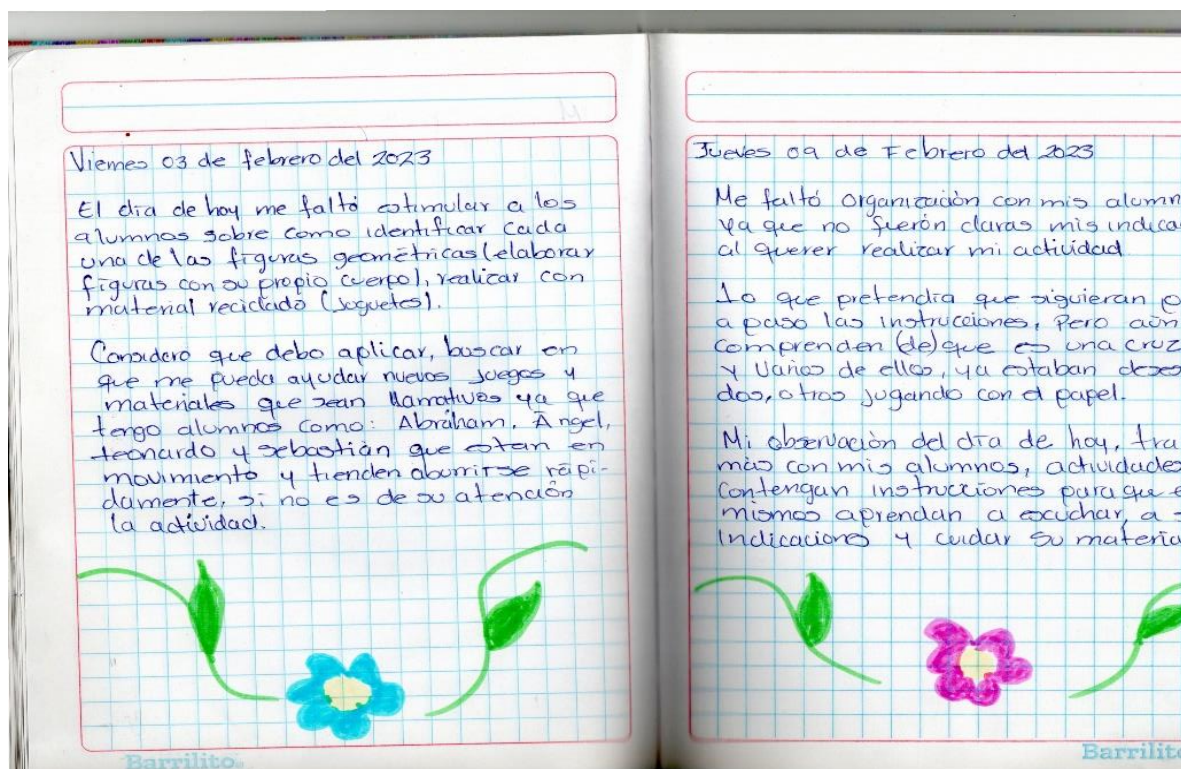 Viernes 03 de febrero del 2023
El dia de hoy me faltó estimular a los
alumnos sobre como identificar cada
una de las figuras geométricas (elaborar
figuras con su propio cuerpo), realizar con
material reciclado (Juguetes).
Considero que debo aplicar, buscar en
que me pueda ayudar nuevos juegos y
materiales que sean llamativos ya que
tengo alumnos como: Abráham, Ángel,
Leonardo y sebastián que estan en
movimiento y tienden aburrirse rápi-
damente, si no es de su atención
la actividad.
Barrilito
Jueves 09 de Febrero del 2023
Me faltó organización con mis alumn
ya que no fuerón claras mis indica
al querer realizar mi actividad
Lo que pretendia que siguieran
a paso las instrucciones, Pero aún
comprenden (de) que es una cruz
y varios de ellos, ya estaban deses
dos, otros jugando con el papel.
Mi observación del día de hoy, tra
más con mis alumnos, actividades
contengan instrucciones para que e
mismos aprendan a escuchar, a s
indicaciones y cuidar su materia
Barrilito